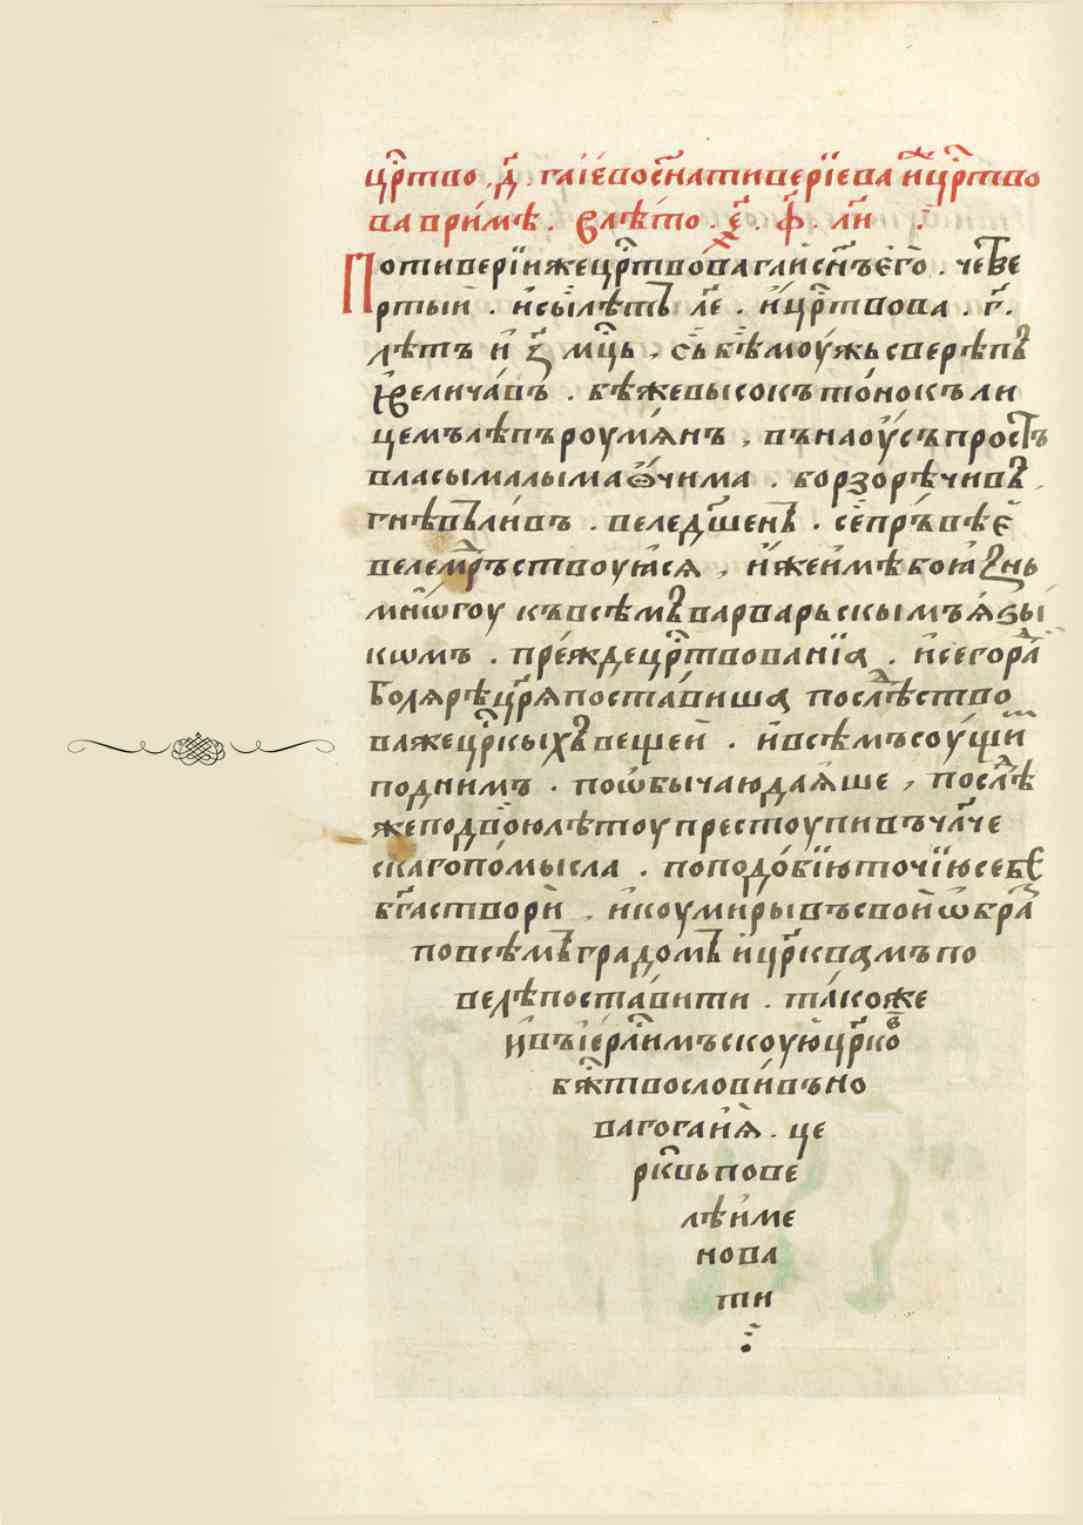 црⷭ҇тво . д҃ . гаїево сн҃а тиверїева и҆ црⷭ҇тво
ва в ри́мѣ . в лѣто . ҂є҃ . ф҃ . л҃и .
По тиверїи же црⷭ҇твова гаи сн҃ъ его̀ . четве
ртыи . и҆ сы́и лѣтъ л҃е . и҆ црⷭ҇твова . г҃ .
лѣтъ и҆ з҃ мцⷭ҇ъ . сь бѣ моу́жь сверѣпъ
и҆ велича́въ . бѣ же высокъ то́нокъ ли
цемъ лѣпъ роумѧ́нъ , въ наоу́съ простъ
власы малыма ѻ҆чима . борзорѣчивъ ,
гнѣвли́въ . веледⷹшенъ . се пръ́вѣе
велемⷣръствоуꙗсѧ , и҆же и҆мѣ боꙗзнь
мнѡ́гоу къ всѣмъ варварьскымъ ѧзы
кѡмъ . пре́жде црⷭ҇твованїꙗ . и҆ сего ра
болѧрѣ црⷭ҇ѧ поста́виша послѣⷣство
ва же црⷭ҇кыхъ вещеи . и҆ всѣмъ соу́щи
под нимъ . по ѡбычаю даѧше , послѣⷣ
же по двою лѣтоу престоупивъ чл҃че
скаго по́мысла . по подо́бїю точїю себе
б҃га створи . и҆ коумиры въ свои ѡбраⷥ
по всѣмъ градомъ и҆ црⷭ҇квамъ по
велѣ поста́вити . та́коже
и҆ въ і҆ерⷭ҇лимъскоую црⷭ҇ковь
бжⷭ҇тво слови́въ но
ваго гаиѧ . це
ркⷪвь пове
лѣ име
нова
ти